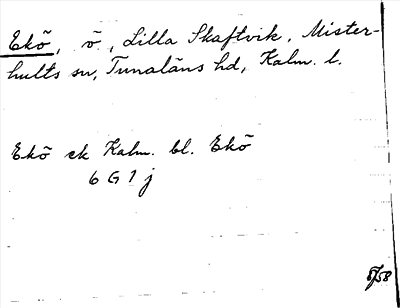 Ekö, ö, Lilla Skaftvik, Mister-
hults sn, Tunaläns hd, Kalm. l.
Ekö ek Kalm. bl. Ekö
6 G 1 j